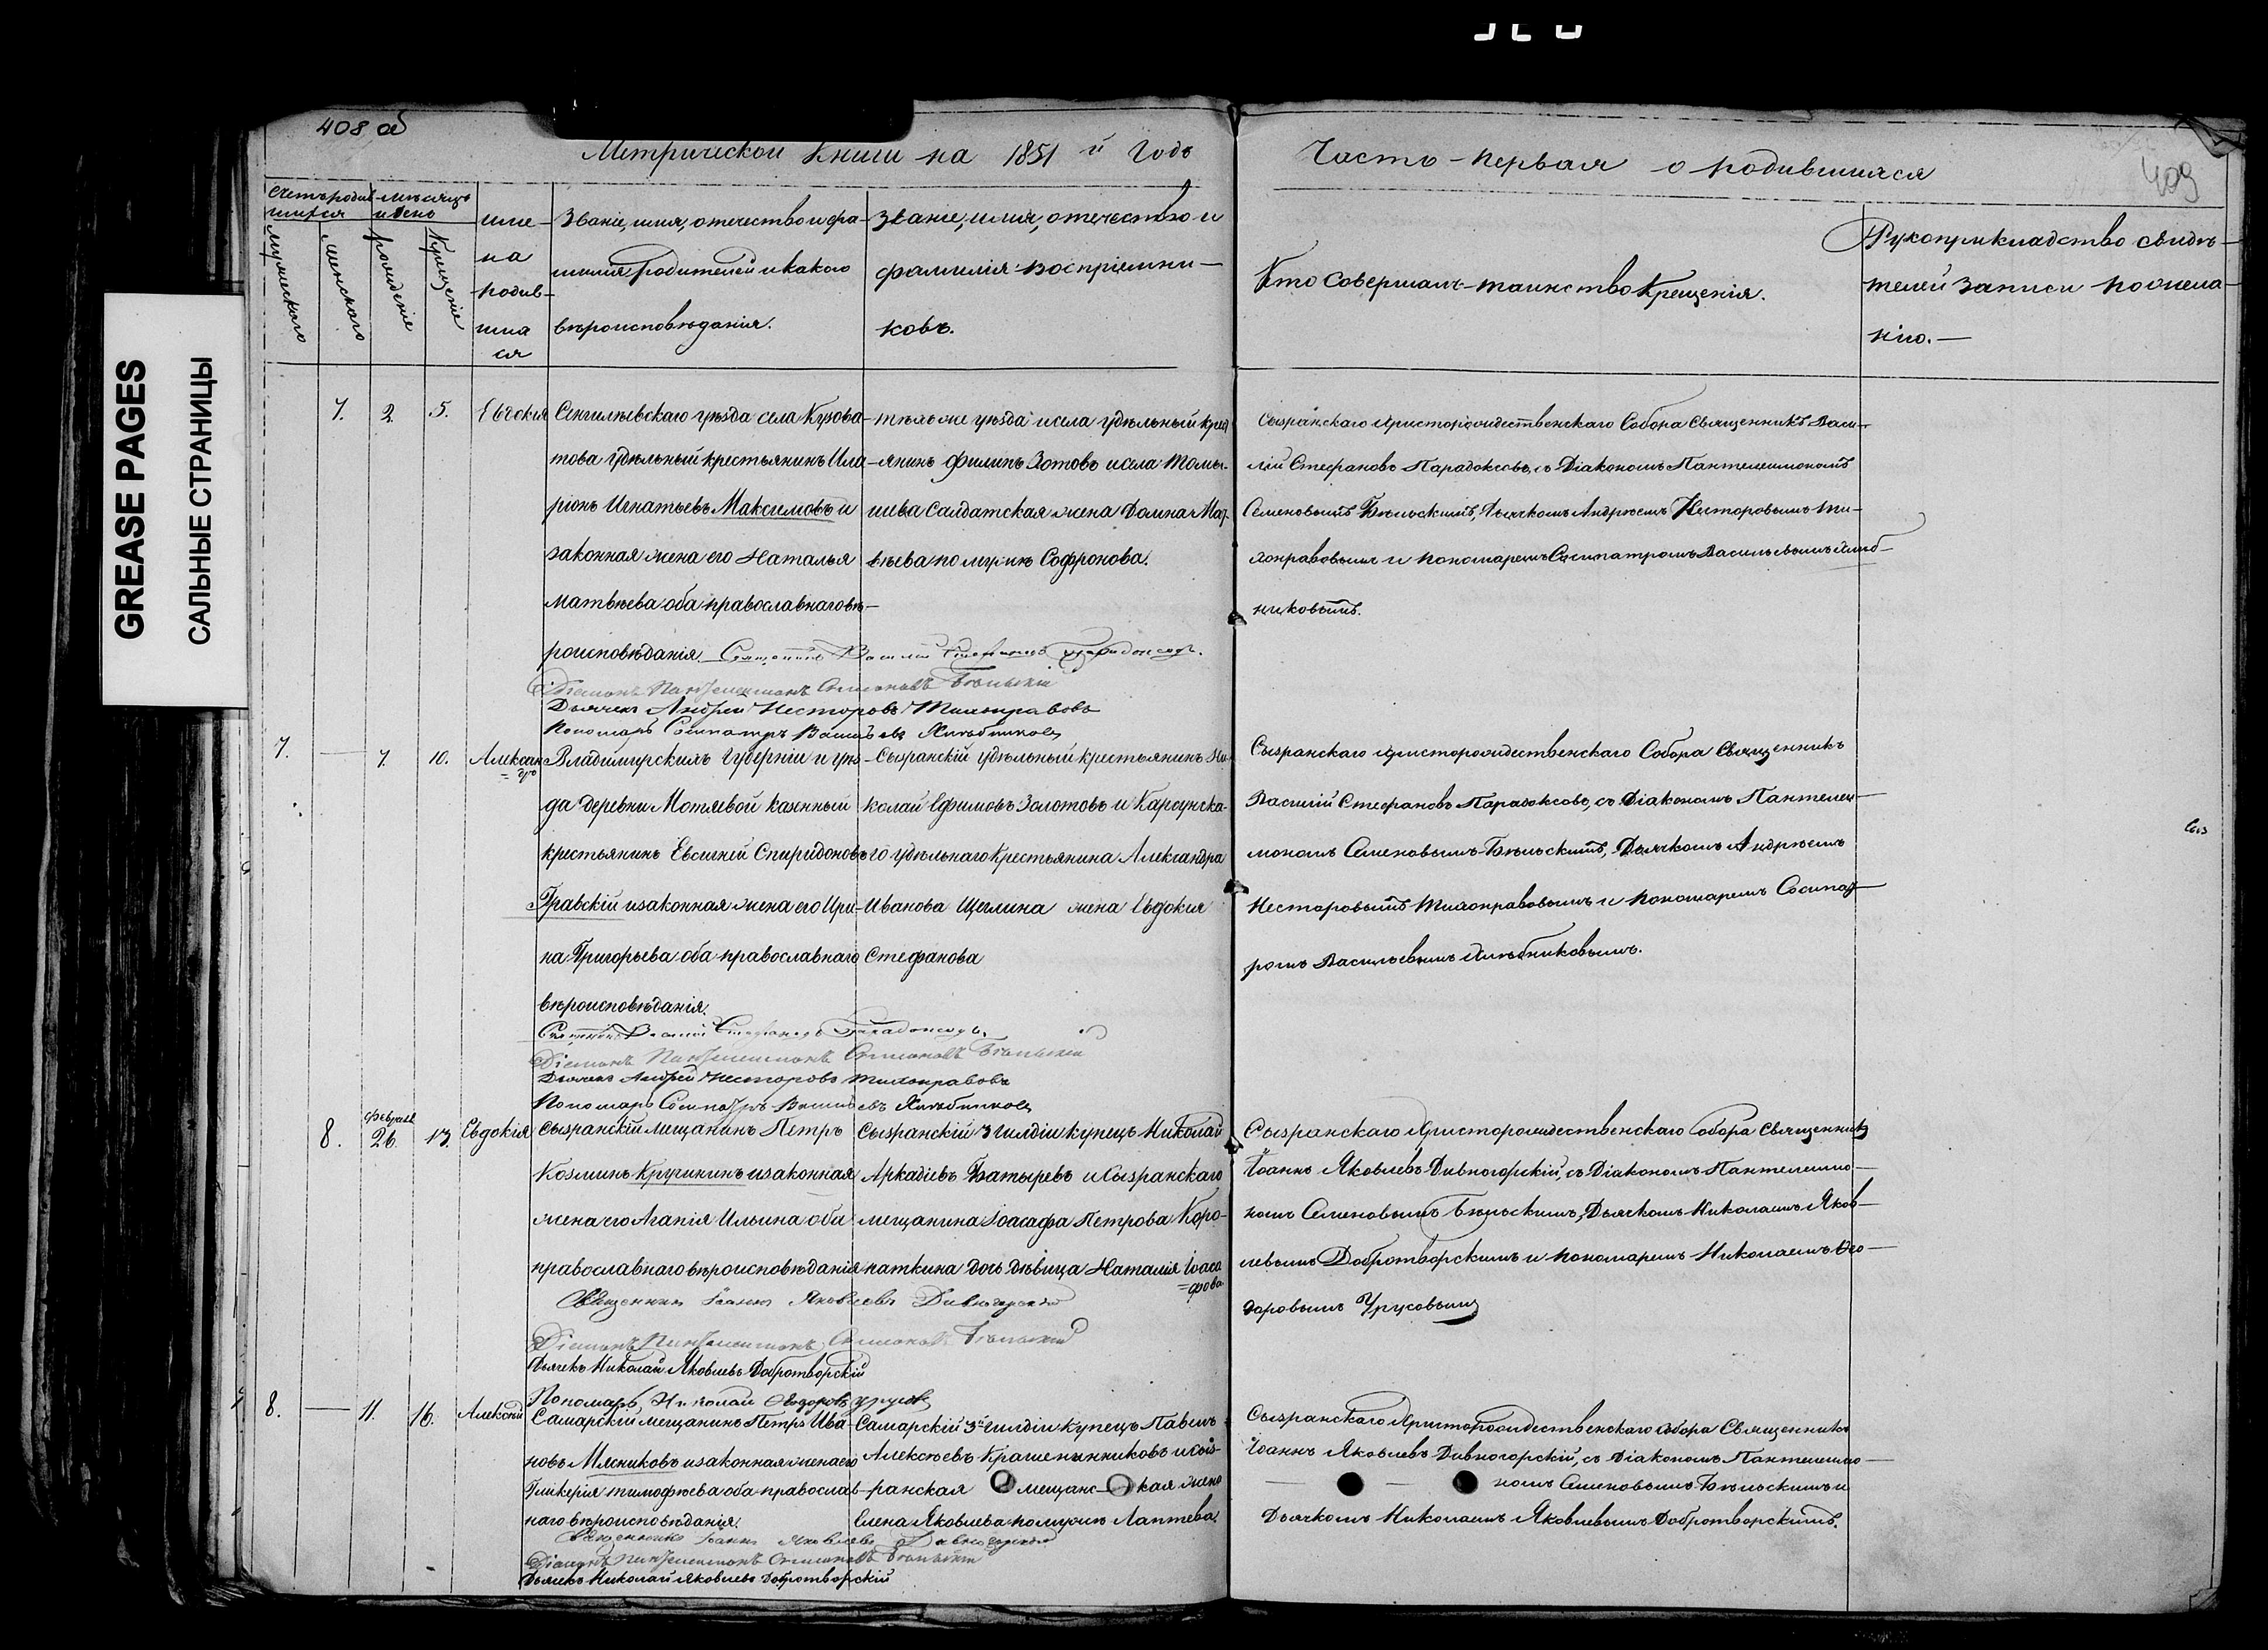 408 об
Метрической Книги на 1851 й Годъ
Часть первая о родившихся
409
GREASE PAGES
САЛЬНЫЕ СТРАНИЦЫ
Счетъ родив-
шихся
мѣсяцъ
и день
Мужескаго
Женскаго
рожденіе
Крещеніе
име-
на
родив-
шиа
ся
Званіе, имя, отечество и фа-
милія родителей и какого
вѣроисповѣданія.
Званіе, имя, отечество и
фамилія воспріемни-
ковъ.
Кто совершалъ таинство Крещенія.
Рукоприкладство свидѣ-
телей записи по жела-
нію.
7. 2. 5.
Сенгилѣевскаго уѣзда села Кузова-
това удѣльный крестьянинъ Ила-
ріонъ Игнатьевъ Максимовъ и
законная жена его Наталья
Матвѣева оба православнаго вѣ-
роисповѣданія.
тѣхъ же уѣзда и села удѣльный крес
янинъ Филипъ Зотовъ и села Томы-
шева Салдатская жена Домна Мат-
вѣева по мужѣ Софронова.
Сызранскаго Христорождественскаго Собора Священникъ Васи-
лій Стефановъ Парадоксовъ, съ Діакономъ Пантелеимономъ
Семеновымъ Бѣльскимъ, Дьячкомъ Андреемъ Несторовымъ Ти-
хонравовымъ и Пономаремъ Сосипатромъ Васильевымъ Хлѣб-
никовымъ.
Священникъ Василій Стефановъ Парадоксовъ.
Діаконъ Пантелеимонъ Симеоновъ Бѣльскій
Дьячекъ Андрей Несторовъ Тихонравовъ
Пономарь Сосипатръ Васильевъ Хлѣбниковъ
7. — 7. 10. Алексан
=дръ
Владимирскихъ Губерніи и уѣз-
да деревни Мотлевой казенный
крестьянинъ Евсигней Спиридоновъ
Гравскій и законная жена его Ири-
на Григорьева оба православнаго
вѣроисповѣданія.
Сызранскій удѣльный крестьянинъ Ни-
колай Ефимовъ Золотовъ и Карсунска-
го удѣльнаго крестьянина Александра
Иванова Щеглина жена Евдокия
Стефанова
Сызранскаго Христорождественскаго Собора Священникъ
Василій Стефановъ Парадоксовъ, съ Діакономъ Пантелеи-
мономъ Семеновымъ Бѣльскимъ, Дьячкомъ Андреемъ
Несторовымъ Тихонравовымъ и Пономаремъ Сосипат-
ромъ Васильевымъ Хлѣбниковымъ.
Священникъ Василій Стефановъ Парадоксовъ.
Діаконъ Пантелеимонъ Симеоновъ Бѣльскій
Дьячекъ Андрей Несторовъ Тихонравовъ
Пономарь Сосипатръ Васильевъ Хлѣбниковъ
8. Февраля 26. 13. Евдокія
Сызранскій мещанинъ Петръ
Козминъ Кручининъ и законная
жена его Агапія Ильина оба
православнаго вѣроисповѣданія
Сызранскій 3 гилдіи купецъ Николай
Аркадіевъ Батыревъ и Сызранскаго
мещанина Іоасафа Петрова Коро-
паткина дочь дѣвица Наталія Іоаса
=фова
Сызранскаго Христорождественскаго Собора Священникъ
Іоаннъ Яковлевъ Дивногорскій, съ Діакономъ Пантелеимо-
номъ Семеновымъ Бѣльскимъ, Дьячкомъ Николаемъ Яков-
левымъ Добротворскимъ и пономаремъ Николаемъ Фео-
доровымъ Урусовымъ
Священникъ Іоаннъ Яковлевъ Дивногорскій
Діаконъ Пантелеимонъ Симеоновъ Бѣльскій
Дьячекъ Николай Яковлевъ Добротворскій
Пономарь, Николай Феодоровъ Урусовъ
8. — 11. 16. Алексѣй
Самарскій мещанинъ Петръ Ива-
новъ Мясниковъ и законная жена его
Гликерія Тимофѣева оба православ-
наго вѣроисповѣданія.
Самарскій 3й гилдіи купецъ Павелъ
Алексѣевъ Крашенинниковъ и Сыз-
ранская мещанс-кая жена
Елена Яковлева по мужѣ Лаптева.
Сызранскаго Христорождественскаго Собора Священникъ
Іоаннъ Яковлевъ Дивногорскій, съ Діакономъ Пантелеимо-
номъ Семеновымъ Бѣльскимъ и
Дьячкомъ Николаемъ Яковлевымъ Добротворскимъ.
Священникъ Іоаннъ Яковлевъ Дивногорскій
Діаконъ Пантелеимонъ Симеоновъ Бѣльскій
Дьячекъ Николай Яковлевъ Добротворскій